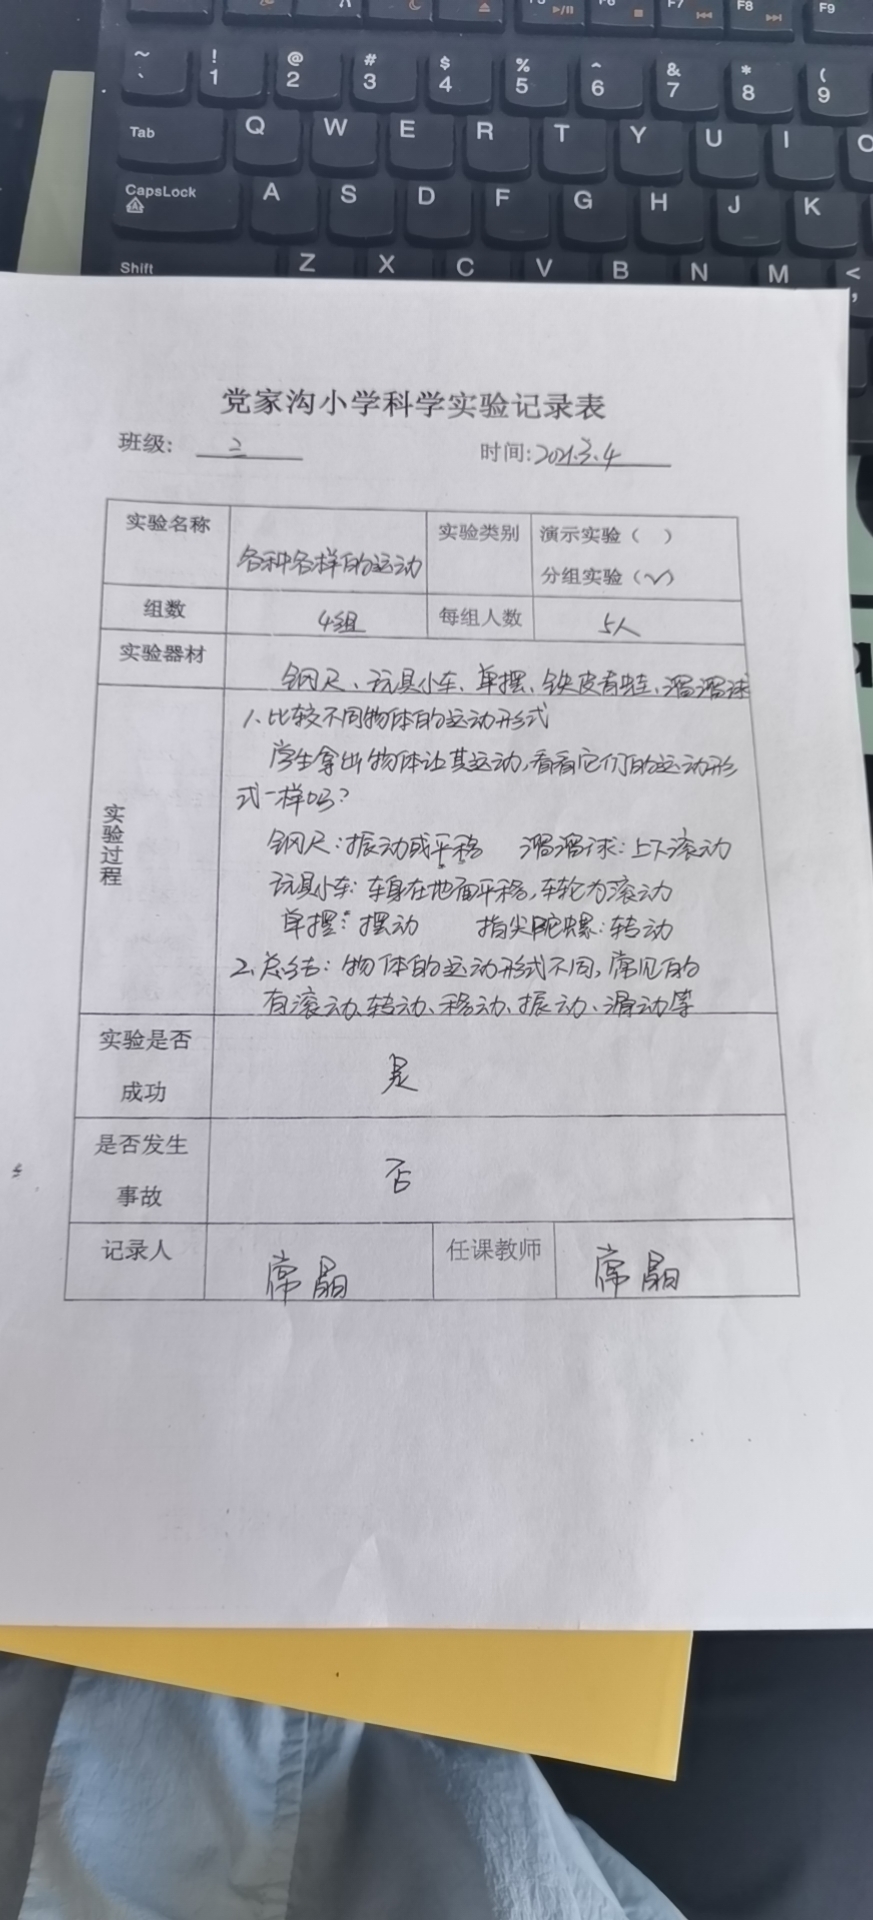 F5 F6 F7 F8 F9
~ ! @ # $ % ^ & * (
` 1 2 3 4 5 6 7 8 9
Tab Q W E R T Y U I O
CapsLock A S D F G H J K
Shift Z X C V B N M < ,
党家沟小学科学实验记录表
班级: 二 时间: 2021.3.4
实验名称 各种各样的运动 实验类别 演示实验（ ）
分组实验（√）
组数 4组 每组人数 5人
实验器材 钢尺、玩具小车、单摆、铁皮青蛙、溜溜球
实验过程
1、比较不同物体的运动形式
学生拿出物体让其运动,看看它们的运动形
式一样吗?
钢尺:振动或平移 溜溜球:上下滚动
玩具小车:车身在地面平移,车轮为滚动
单摆:摆动 指尖陀螺:转动
2、总结:物体的运动形式不同,常见的
有滚动、转动、移动、振动、滑动等
实验是否
成功 是
是否发生
事故 否
记录人 席晶 任课教师 席晶